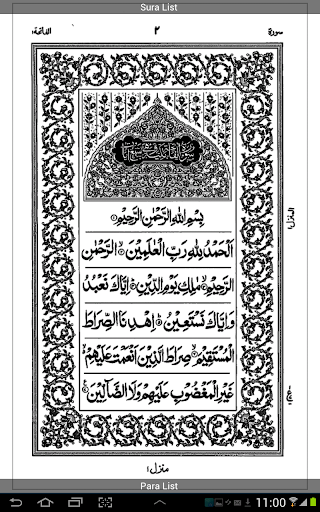 Sura List
سورة ٢ الفاتحة
بِسْمِ اللهِ الرَّحْمٰنِ الرَّحِيْمِ
اَلْحَمْدُ لِلّٰهِ رَبِّ الْعٰلَمِيْنَ الرَّحْمٰنِ
الرَّحِيْمِ مٰلِكِ يَوْمِ الدِّيْنِ اِيَّاكَ نَعْبُدُ
وَاِيَّاكَ نَسْتَعِيْنُ اِهْدِنَا الصِّرَاطَ
الْمُسْتَقِيْمَ صِرَاطَ الَّذِيْنَ اَنْعَمْتَ عَلَيْهِمْ
غَيْرِ الْمَغْضُوْبِ عَلَيْهِمْ وَلَا الضَّآلِّيْنَ
منزل ١
Para List
11:00